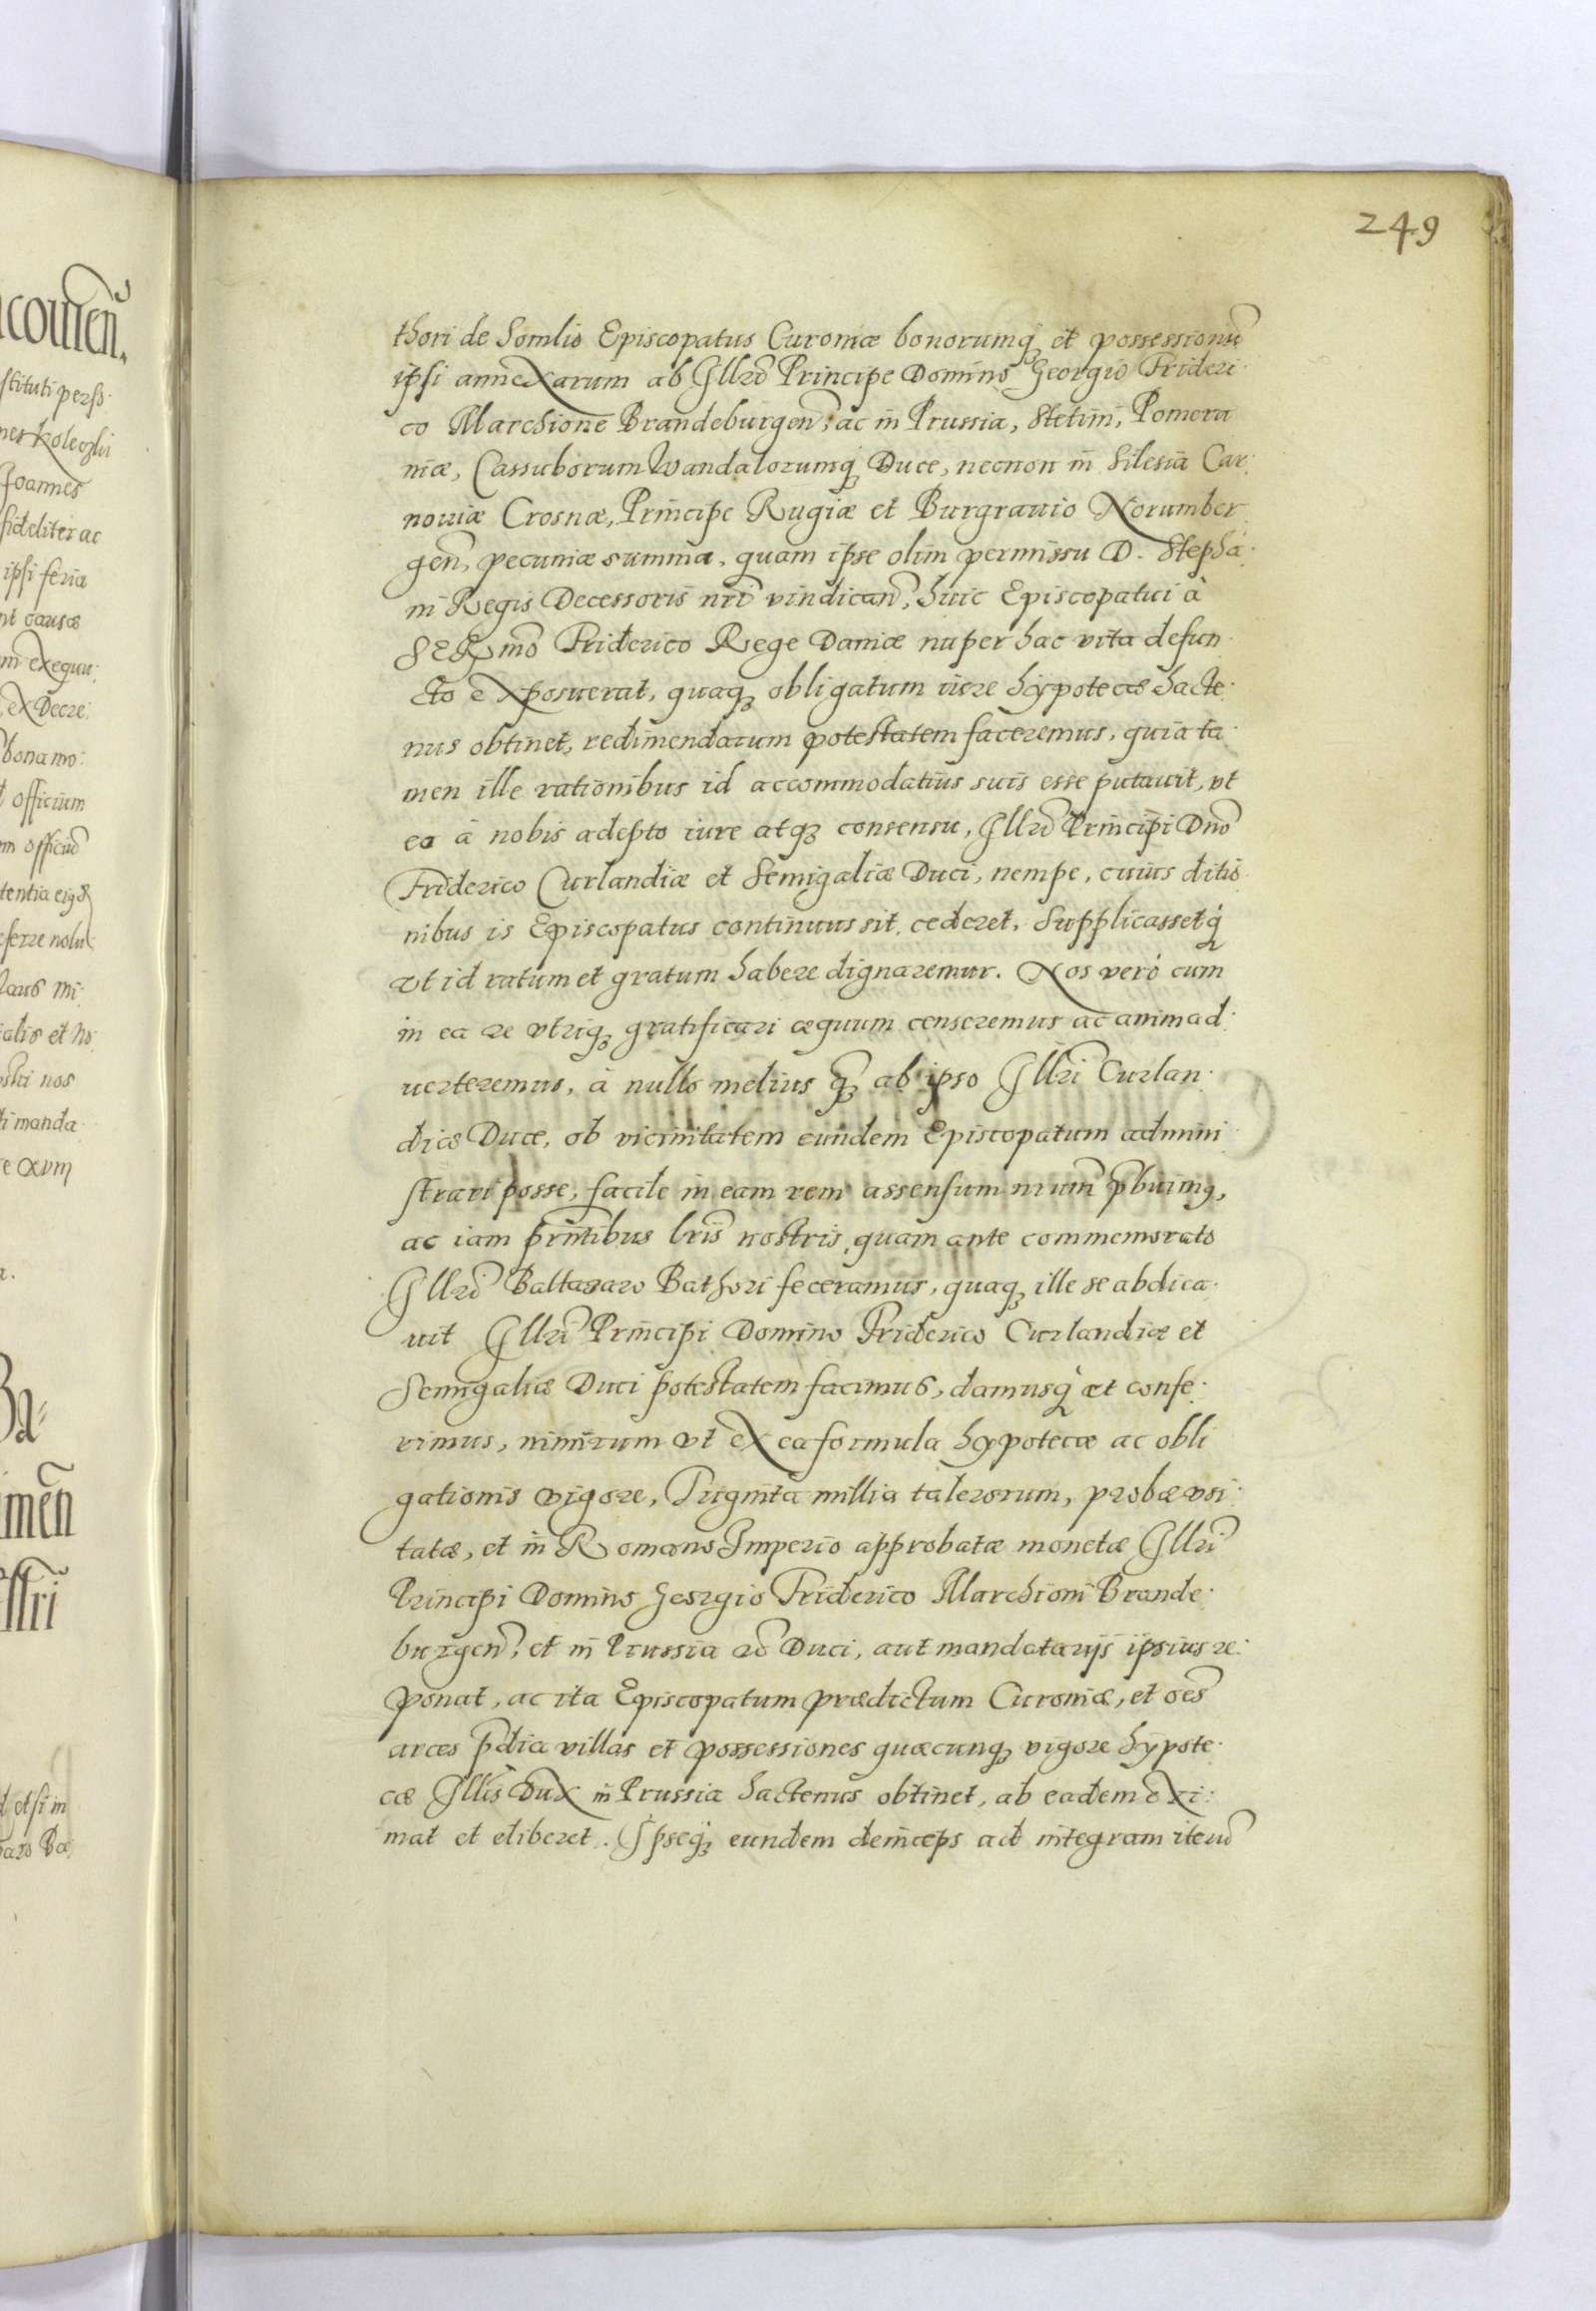 249
thori de Somlio Episcopatus Curoniæ bonorumq₃ et possessionū
ipsi annexarum ab Illr̄o Principe Domino Georgio Frideri
co Marchione Brandeburgeñ: ac in Prussia, Stetini, Pomera
niæ, Cassuborum Wandalorumq₃ Duce, necnon in Silesia Car:
nouiæ Crosnæ, Principe Rugiæ et Burgrauio Norumber
geñ, pecuniæ summa, quam ipse olim permissu D. Stepha:
ni Regis Decessoris nr̄i vindicañ, huic Episcopatui à
SERmo Friderico Rege Daniæ nuper hac vita defun
cto exposuerat, quaq₃ obligatum iure hypotecæ hacte
nus obtinet, redimendarum potestatem faceremus, quia ta
men ille rationibus id accommodatius suis esse putauit, vt
ea à nobis adepto iure atq₃ consensu, Illr̄o Principi Dn̄o
Friderico Curlandiæ et Semigaliæ Duci, nempe, cuius ditio
nibus is Episcopatus continuus sit, cederet, Supplicassetq₃
vt id ratum et gratum habere dignaremur. Nos verò cum
in ea re vtriq₃ gratificari æquum censeremus ac animad:
uerteremus, à nullo melius q₃ ab ipso Illr̄i Curlan
diæ Duce, ob vicinitatem eundem Episcopatum admini
strari posse, facile in eam rem assensum nr̄um p̄buimq,
ac iam pr̄ntibus lr̄is nostris, quam ante commemorato
Illr̄o Baltazaro Bathori feceramus, quaq₃ ille se abdica
uit Illr̄i Principi Domino Friderico Curlandiæ et
Semigaliæ Duci potestatem facimus, damusq₃ et confe:
rimus, nimirum vt ex ea formula hypotecæ ac obli
gationis vigore, Triginta millia talerorum, probæ vsi
tatæ, et in Romano Imperio approbatæ monetæ Illr̄i
Principi Domino Georgio Friderico Marchioni Brande
burgeñ: et in Prussia Duci, aut mandatarijs ipsius re:
ponat, ac ita Episcopatum prædictum Curoniæ, et oēs
arces p̄dia villas et possessiones quæcunq₃ vigore hypote
cæ Illr̄is Dux in Prussia hactenus obtinet, ab eadem exi:
mat et eliberet. Ipseq₃ eundem deinceps ad integram iterū